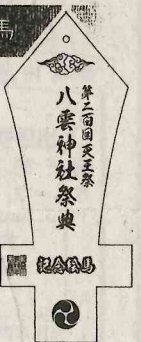 馬
第二百回天王祭
八雲神社祭典
記念絵馬